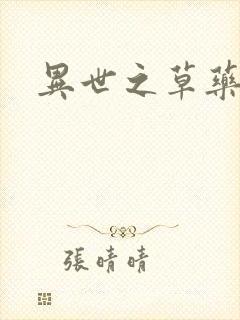 異世之草藥
張晴晴